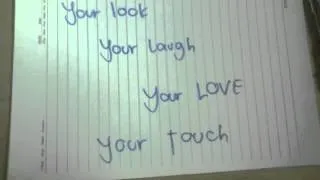 your look
your laugh
your LOVE
your TOUCH